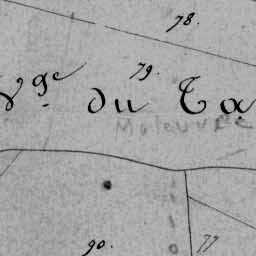 78.
79.
Vge du Ta
Malouvre
90.
77